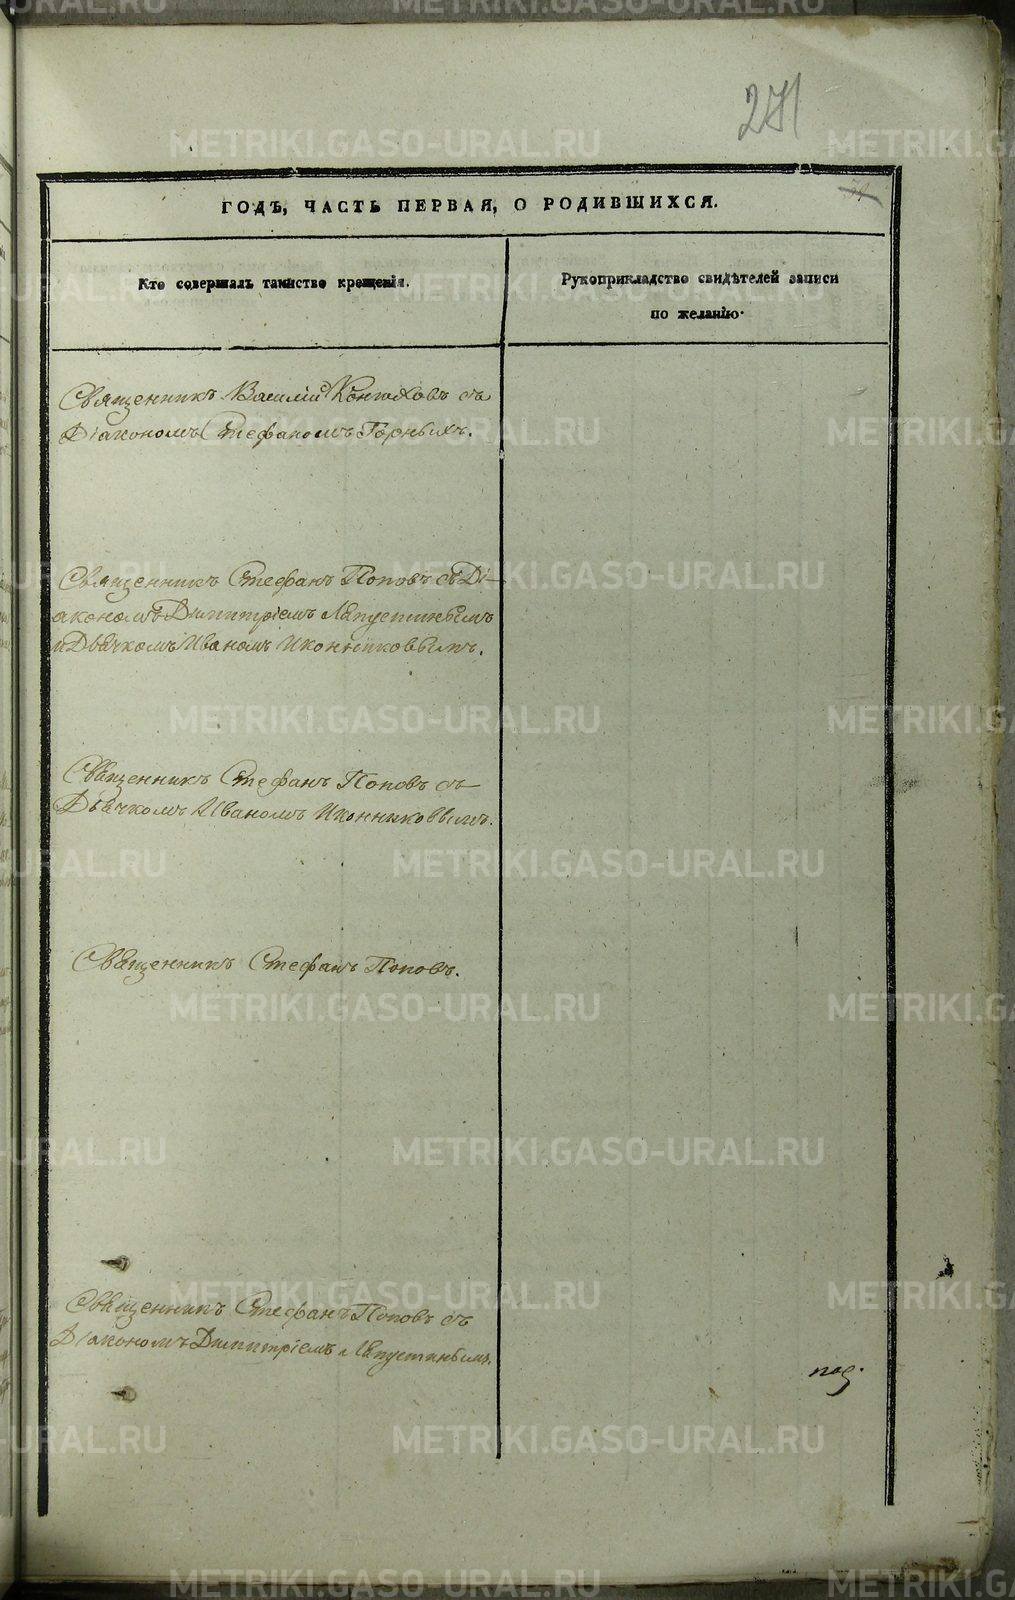 271
ГОДЪ, ЧАСТЬ ПЕРВАЯ, О РОДИВШИХСЯ.
Кто совершалъ таинство крещенія.
Рукоприкладство свидѣтелей записи
по желанію.
Священникъ Василій Конюховъ съ
Діакономъ Стефаномъ Горныхъ.
Священникъ Стефанъ Поповъ съ Ді-
акономъ Димитріемъ Лапустинымъ
и Дьячкомъ Иваномъ Иконниковымъ.
Священникъ Стефанъ Поповъ съ
Дьячкомъ Иваномъ Иконниковымъ.
Священникъ Стефанъ Поповъ.
Священникъ Стефанъ Поповъ съ
Діакономъ Димитріемъ Лапустинымъ.
METRIKI.GASO-URAL.RU